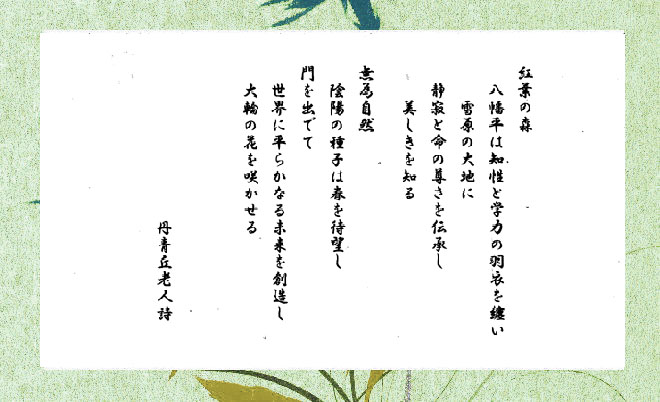 紅葉の森
八幡平は知性と学力の羽衣を纏い
雪原の大地に
静寂と命の尊さを伝承し
美しきを知る
無為自然
陰陽の種子は春を待望し
門を出でて
世界に平らかなる未来を創造し
大輪の花を咲かせる
丹青丘老人詩